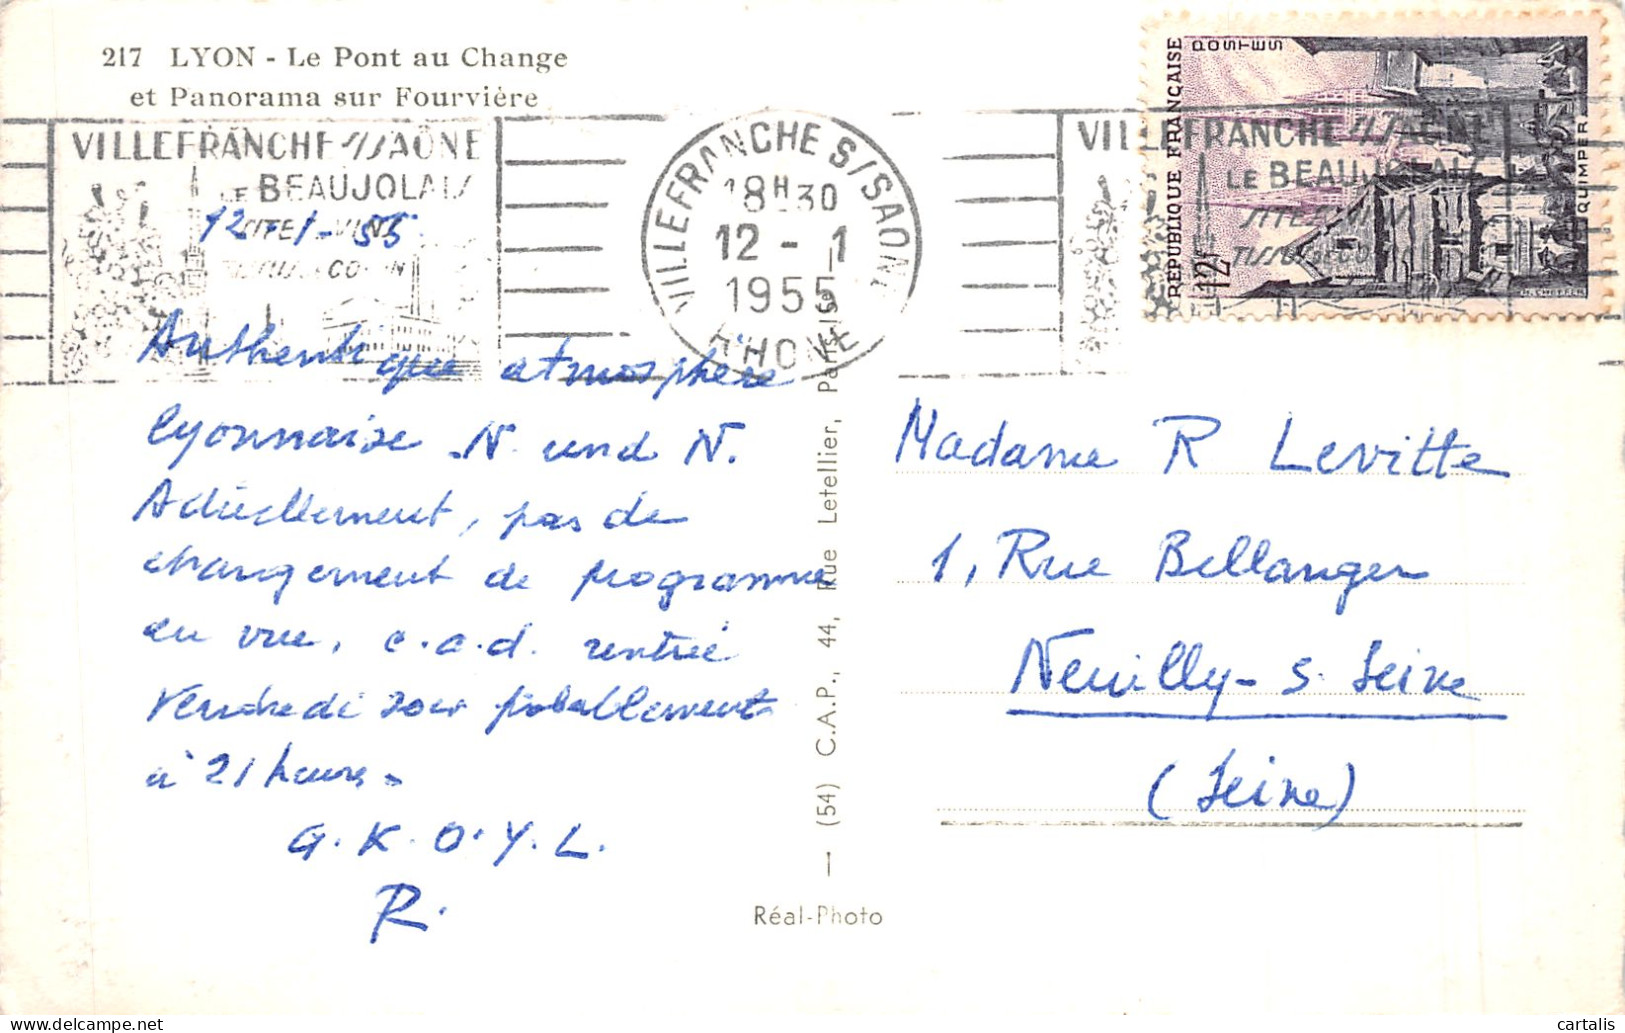 217 LYON - Le Pont au Change
et Panorama sur Fourvière
VILLEFRANCHE S/SAÔNE
LE BEAUJOLAIS
VILLEFRANCHE S/SAONE
18H30
12 - 1
1955
RHONE
VILLEFRANCHE S/SAÔNE
LE BEAUJOLAIS
REPUBLIQUE FRANÇAISE
POSTES
QUIMPER
12F
12-1-55
Authentique atmosphère
lyonnaise N. und N.
Actuellement, pas de
changement de programme
en vue, c.a.d. rentrée
Vendredi soir probablement
à 21 heures.
G.K.O.Y.L.
R.
Madame R Levitte
1, Rue Bellanger
Neuilly-s-Seine
(Seine)
(54) C.A.P., 44, Rue Letellier, Paris-15e
Réal-Photo
cartalis
delcampe.net